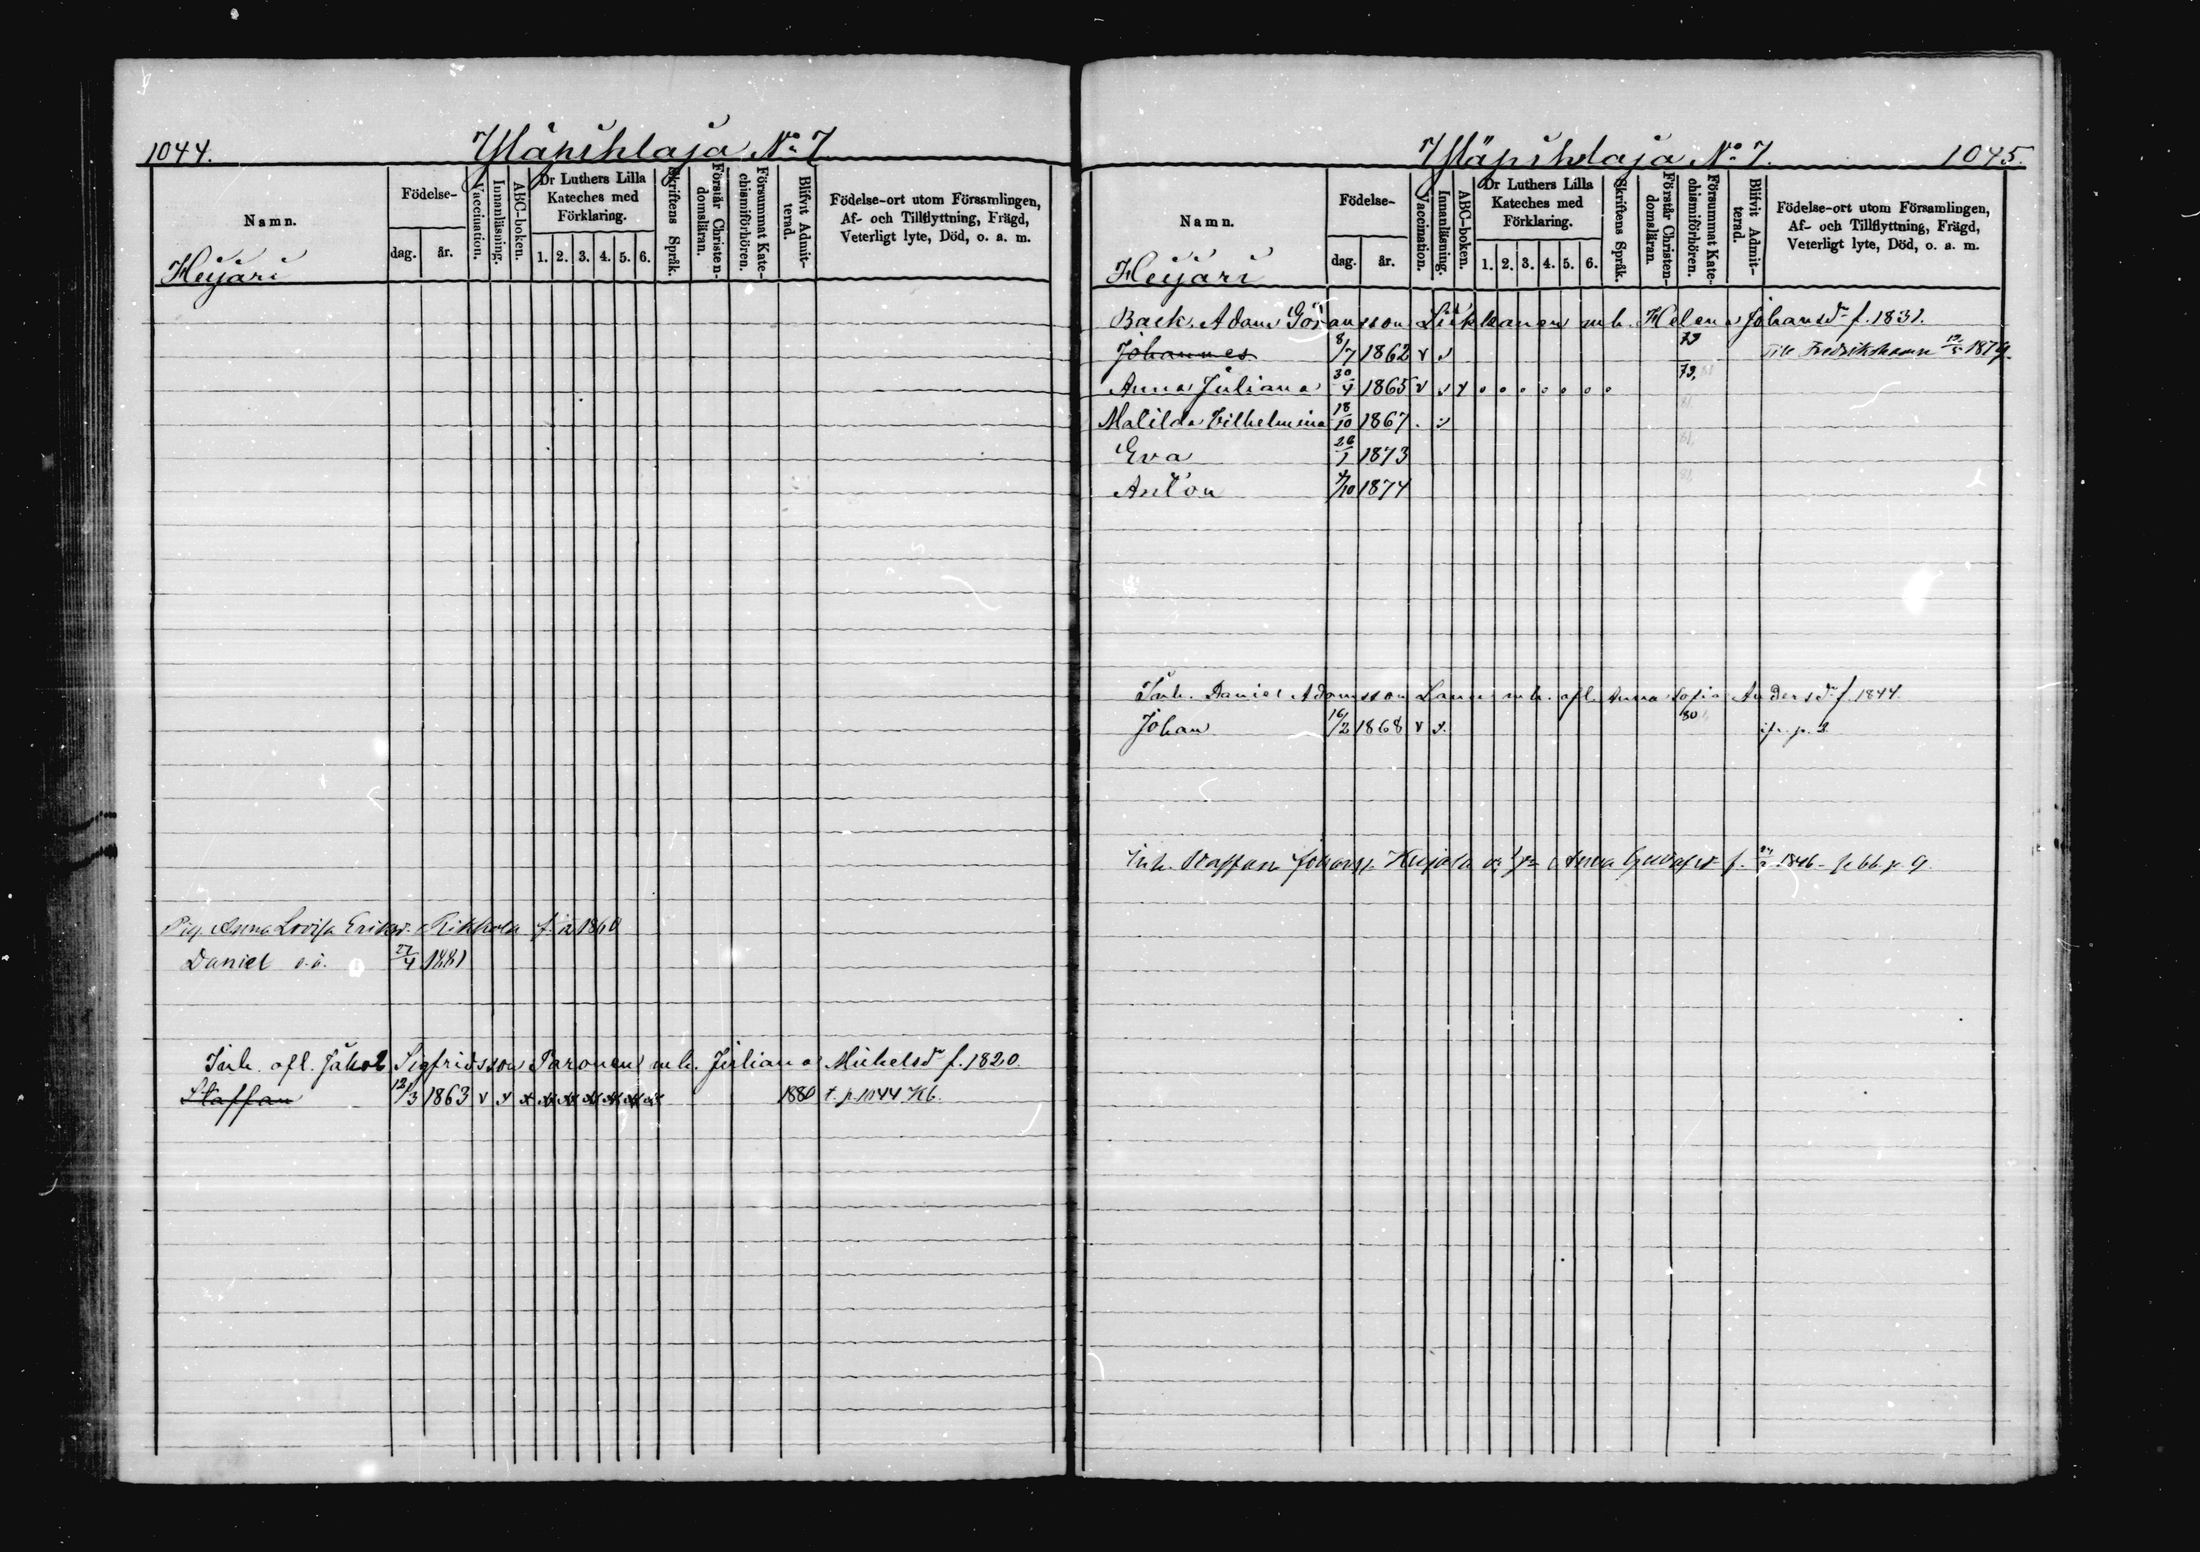 1044. Yläpihlaja No 7
Namn. Födelse- dag. år. Vaccination. Innanläsning. ABC-boken. Dr Luthers Lilla Kateches med Förklaring. 1. 2. 3. 4. 5. 6. Skriftens Språk. Förstår Christendomsläran. Försummat Katechismiförhören. Blifvit Admitterad. Födelse-ort utom Församlingen, Af- och Tillflyttning, Frägd, Veterligt lyte, Död, o. a. m.
Heijäri
Pig. Anna Lovisa Eriksd. Kikkola f. 1860
Daniel o.ä. 27/4 1881
Inh. afl. Jakob Sigfridsson Paronen m h. Juliana Michelsdr f. 1820.
Staffan 12/3 1863 v 1880 t. p. 1044 Kb.
Yläpihlaja No 7. 1045.
Namn. Födelse- dag. år. Vaccination. Innanläsning. ABC-boken. Dr Luthers Lilla Kateches med Förklaring. 1. 2. 3. 4. 5. 6. Skriftens Språk. Förstår Christendomsläran. Försummat Katechismiförhören. Blifvit Admitterad. Födelse-ort utom Församlingen, Af- och Tillflyttning, Frägd, Veterligt lyte, Död, o. a. m.
Heijäri
Back. Adam Göransson Liikkanen m h. Helena Johansdr f. 1831.
Johannes 8/7 1862 v 79 Till Fredrikshamn 1879.
Anna Juliana 30/4 1865 v 79, 81
Matilda Vilhelmina 18/10 1867 81
Eva 26/1 1873 81,
Anton 4/10 1874 81,
Inh. Daniel Adamsson Lanu m h. afl. Anna Sofia Andersdr f. 1844.
Johan 16/2 1868 v 80
Inh. Staffan Johanss. Kujala Anna f. 1846